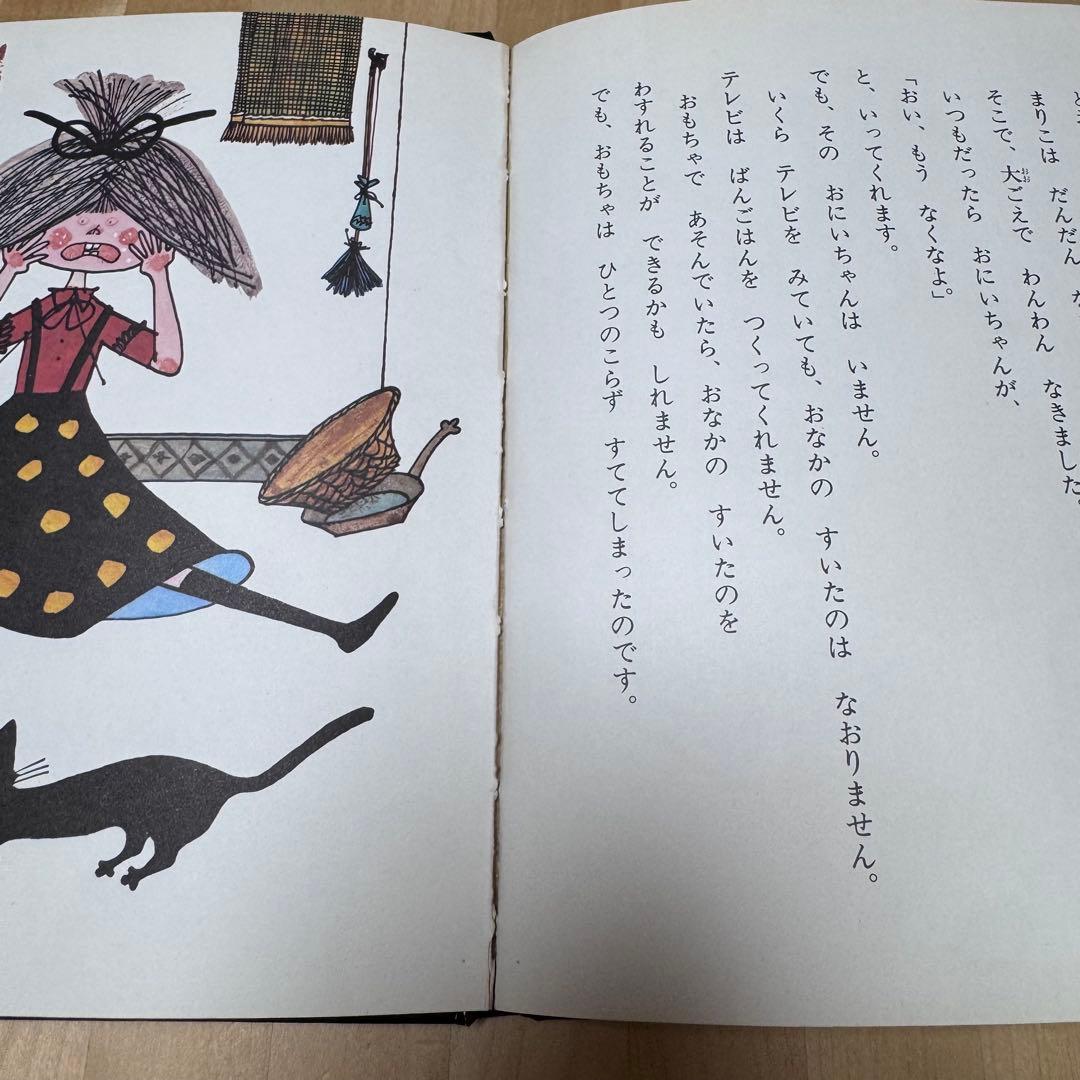 まりこは　だんだん
そこで、大ごえで　わんわん　なきました。
いつもだったら　おにいちゃんが、
「おい、もう　なくなよ。」
と、いってくれます。
でも、その　おにいちゃんは　いません。
いくら　テレビを　みていても、おなかの　すいたのは　なおりません。
テレビは　ばんごはんを　つくってくれません。
おもちゃで　あそんでいたら、おなかの　すいたのを
わすれることが　できるかも　しれません。
でも、おもちゃは　ひとつのこらず　すててしまったのです。